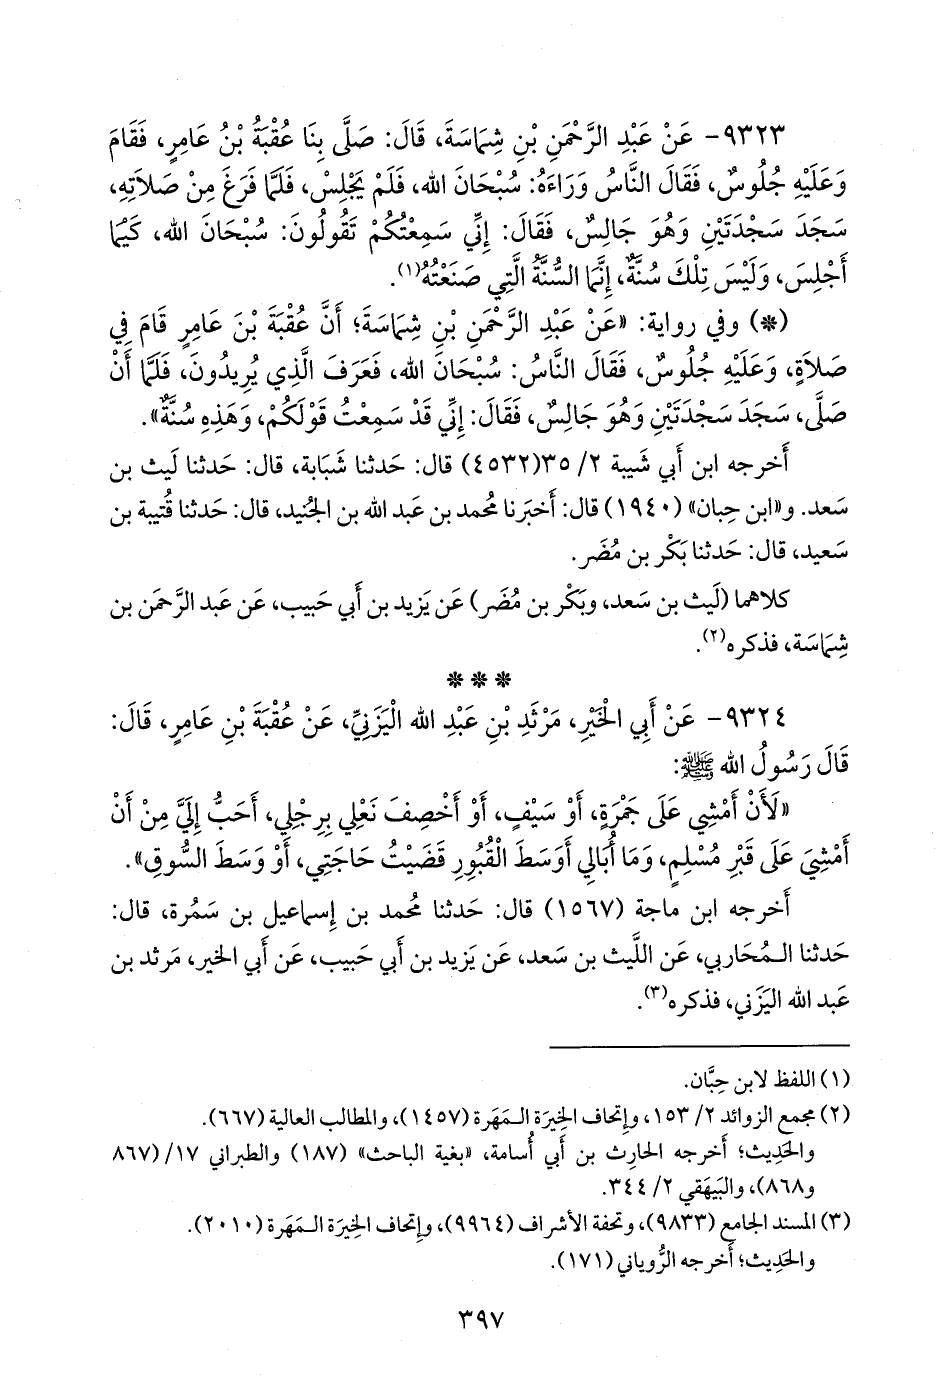 ٩٣٢٣- عَنْ عَبْدِ الرَّحْمَنِ بْنِ شِمَاسَةَ، قَالَ: صَلَّى بِنَا عُقْبَةُ بْنُ عَامِرٍ، فَقَامَ
وَعَلَيْهِ جُلُوسٌ، فَقَالَ النَّاسُ وَرَاءَهُ: سُبْحَانَ الله، فَلَمْ يَجْلِسْ، فَلَمَّا فَرَغَ مِنْ صَلاَتِهِ،
سَجَدَ سَجْدَتَيْنِ وَهُوَ جَالِسٌ، فَقَالَ: إِنِّي سَمِعْتُكُمْ تَقُولُونَ: سُبْحَانَ الله، كَيْمَا
أَجْلِسَ، وَلَيْسَ تِلْكَ سُنَّةٌ، إِنَّمَا السُّنَّةُ الَّتِي صَنَعْتُهُ(١).
(*) وفي رواية: «عَنْ عَبْدِ الرَّحْمَنِ بْنِ شِمَاسَةَ؛ أَنَّ عُقْبَةَ بْنَ عَامِرٍ قَامَ فِي
صَلاَةٍ، وَعَلَيْهِ جُلُوسٌ، فَقَالَ النَّاسُ: سُبْحَانَ الله، فَعَرَفَ الَّذِي يُرِيدُونَ، فَلَمَّا أَنْ
صَلَّى، سَجَدَ سَجْدَتَيْنِ وَهُوَ جَالِسٌ، فَقَالَ: إِنِّي قَدْ سَمِعْتُ قَوْلَكُمْ، وَهَذِهِ سُنَّةٌ».
أَخرجه ابن أَبي شَيبة ٢/ ٣٥(٤٥٣٢) قال: حَدثنا شَبَابة، قال: حَدثنا لَيث بن
سَعد. و«ابن حِبان» (١٩٤٠) قال: أَخبَرنا مُحمد بن عَبد الله بن الجُنيد، قال: حَدثنا قُتيبة بن
سَعيد، قال: حَدثنا بَكْر بن مُضَر.
كلاهما (لَيث بن سَعد، وبَكْر بن مُضَر) عَن يَزيد بن أَبي حَبيب، عَن عَبد الرَّحمَن بن
شِمَاسَة، فذكره(٢).
* * *
٩٣٢٤- عَنْ أَبِي الْخَيْرِ، مَرْثَدِ بْنِ عَبْدِ الله الْيَزَنِيِّ، عَنْ عُقْبَةَ بْنِ عَامِرٍ، قَالَ:
قَالَ رَسُولُ الله ﷺ:
«لَأَنْ أَمْشِي عَلَى جَمْرَةٍ، أَوْ سَيْفٍ، أَوْ أَخْصِفَ نَعْلِي بِرِجْلِي، أَحَبُّ إِلَيَّ مِنْ أَنْ
أَمْشِيَ عَلَى قَبْرِ مُسْلِمٍ، وَمَا أُبَالِي أَوَسَطَ الْقُبُورِ قَضَيْتُ حَاجَتِي، أَوْ وَسَطَ السُّوقِ».
أَخرجه ابن ماجة (١٥٦٧) قال: حَدثنا مُحمد بن إِسماعيل بن سَمُرة، قال:
حَدثنا الـمُحَاربي، عَن اللَّيث بن سَعد، عَن يَزيد بن أَبي حَبيب، عَن أَبي الخير، مَرثد بن
عَبد الله اليَزَني، فذكره(٣).
(١) اللفظ لابن حِبَّان.
(٢) مجمع الزوائد ٢/ ١٥٣، وإِتحاف الخِيرَة الـمَهَرة (١٤٥٧)، والمطالب العالية (٦٦٧).
والحَدِيث؛ أَخرجه الحارِث بن أَبي أُسامة، «بغية الباحث» (١٨٧) والطبراني ١٧/(٨٦٧
و٨٦٨)، والبَيهَقي ٢/ ٣٤٤.
(٣) المسند الجامع (٩٨٣٣)، وتحفة الأشراف (٩٩٦٤)، وإِتحاف الخِيرَة الـمَهَرة (٢٠١٠).
والحَدِيث؛ أَخرجه الرُّوياني (١٧١).
٣٩٧